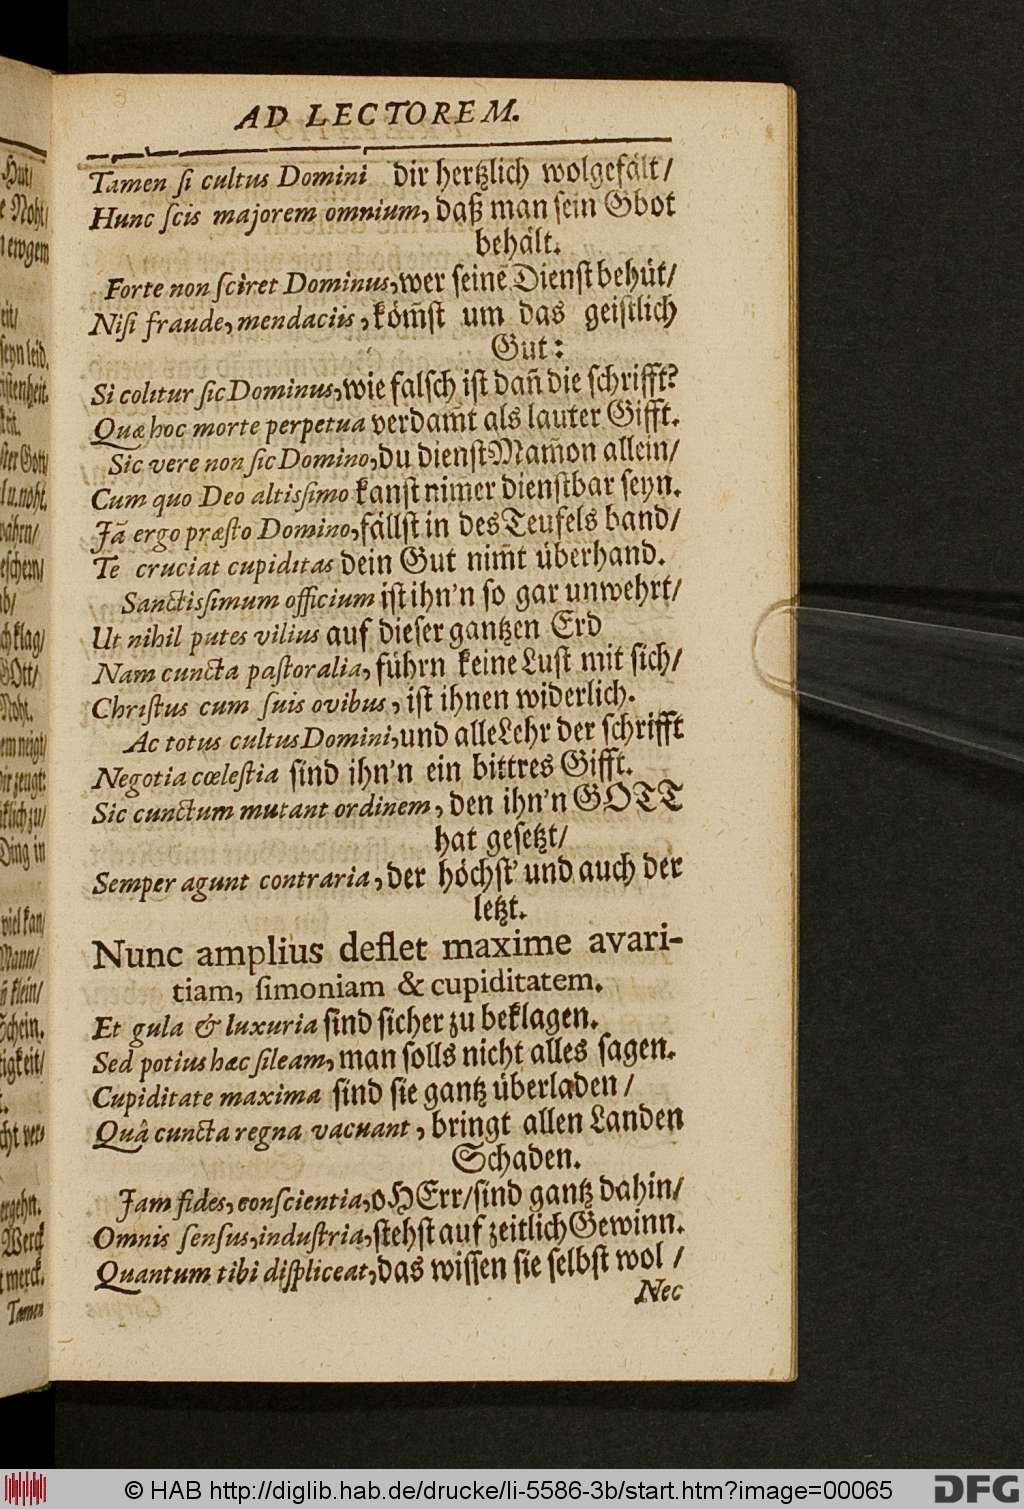 AD LECTOREM.
Tamen ſi cultus Domini dir hertzlich wolgefält/
Hunc ſcis majorem omnium, daß man ſein Gbot
behält.
Forte non ſciret Dominus, wer ſeinē Dienſt behüt/
Niſi fraude, mendaciis, köm̃ſt um das geiſtlich
Gut:
Si colitur ſic Dominus, wie falſch iſt dañ die ſchrifft?
Quæ hoc morte perpetua verdam̃t als lauter Gifft.
Sic vere non ſic Domino, du dienſt Mam̃on allein/
Cum quo Deo altisſimo kanſt nimer dienſtbar ſeyn.
Jā ergo præſto Domino, fällſt in des Teufels band/
Te cruciat cupiditas dein Gut nim̃t überhand.
Sanctisſimum officium iſt ihn'n ſo gar unwehrt/
Ut nihil putes vilius auf dieſer gantzen Erd
Nam cuncta paſtoralia, führn keine Luſt mit ſich/
Chriſtus cum ſuis ovibus, iſt ihnen widerlich.
Ac totus cultus Domini, und alle Lehr der ſchrifft
Negotia cœleſtia ſind ihn'n ein bittres Gifft.
Sic cunctum mutant ordinem, den ihn'n GOTT
hat geſetzt/
Semper agunt contraria, der höchſt' und auch der
letzt.
Nunc amplius deflet maxime avari-
tiam, ſimoniam & cupiditatem.
Et gula & luxuria ſind ſicher zu beklagen.
Sed potius hæc ſileam, man ſolls nicht alles ſagen.
Cupiditate maxima ſind ſie gantz überladen /
Quâ cuncta regna vacuant, bringt allen Landen
Schaden.
Jam fides, conſcientia, o HErr/ſind gantz dahin/
Omnis ſenſus, induſtria, ſtehſt auf zeitlich Gewinn.
Quantum tibi diſpliceat, das wiſſen ſie ſelbſt wol /
Nec
© HAB http://diglib.hab.de/drucke/li-5586-3b/start.htm?image=00065
DFG